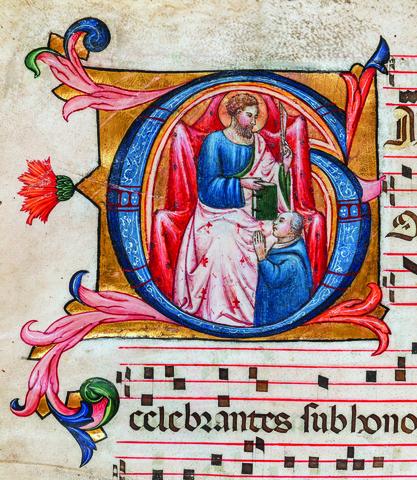 G
celebrantes ſubhono